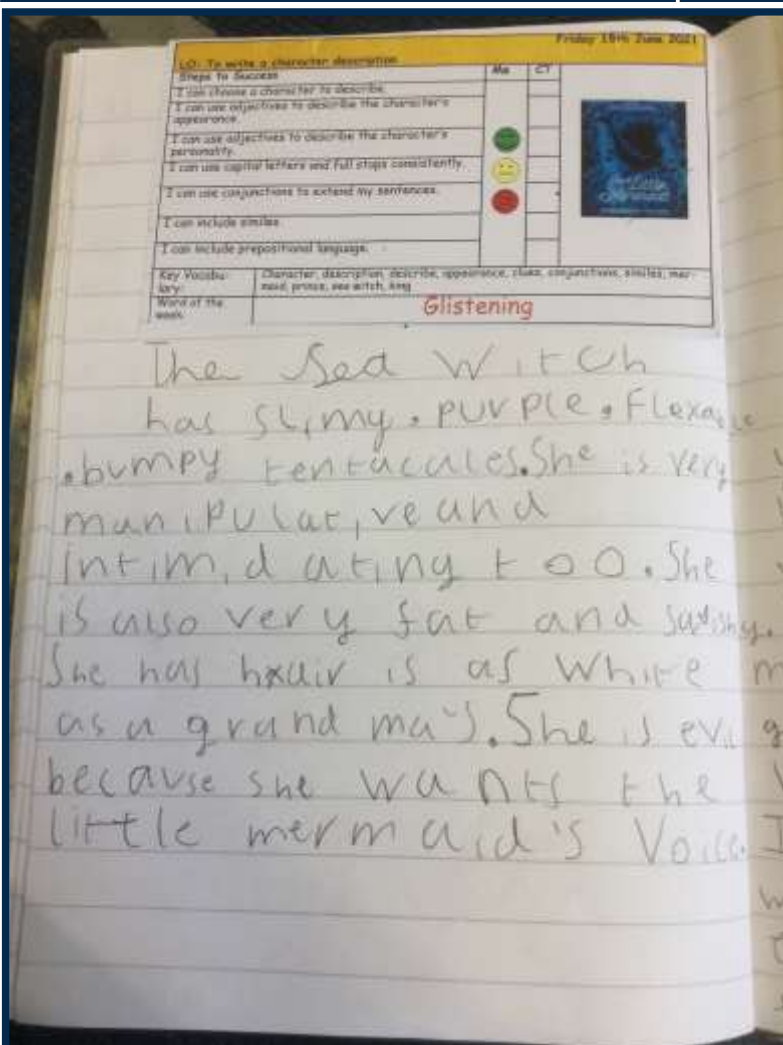 Friday 18th June 2021
LO: To write a character description
Steps to Success Me CT
I can choose a character to describe.
I can use adjectives to describe the character's
appearance.
I can use adjectives to describe the character's
personality.
I can use capital letters and full stops consistently.
I can use conjunctions to extend my sentences.
I can include similes.
I can include prepositional language.
Key Vocabu-
lary: Character, description, describe, appearance, clues, conjunctions, similes, mer-
maid, prince, sea witch, king
Word of the
week Glistening
The Sea Witch
has slimy . purple . Flexa
. bumpy tentacales. She is very
manipulative and
intimidating too. She
is also very fat and
She has hair is as white
as a grand ma's. She is evil
because she wants the
little mermaid's Voice.